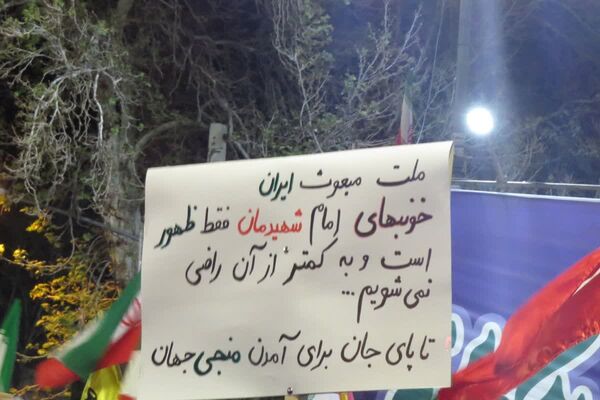 ملت مبعوث ایران
خونبهای امام شهیدمان فقط ظهور
است و به کمتر از آن راضی
نمی‌شویم...
تا پای جان برای آمدن منجی جهان